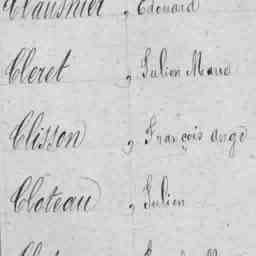 Clausnier, Edouard
Cleret, Julien Marie
Clisson, François ange
Cloteau, Julien